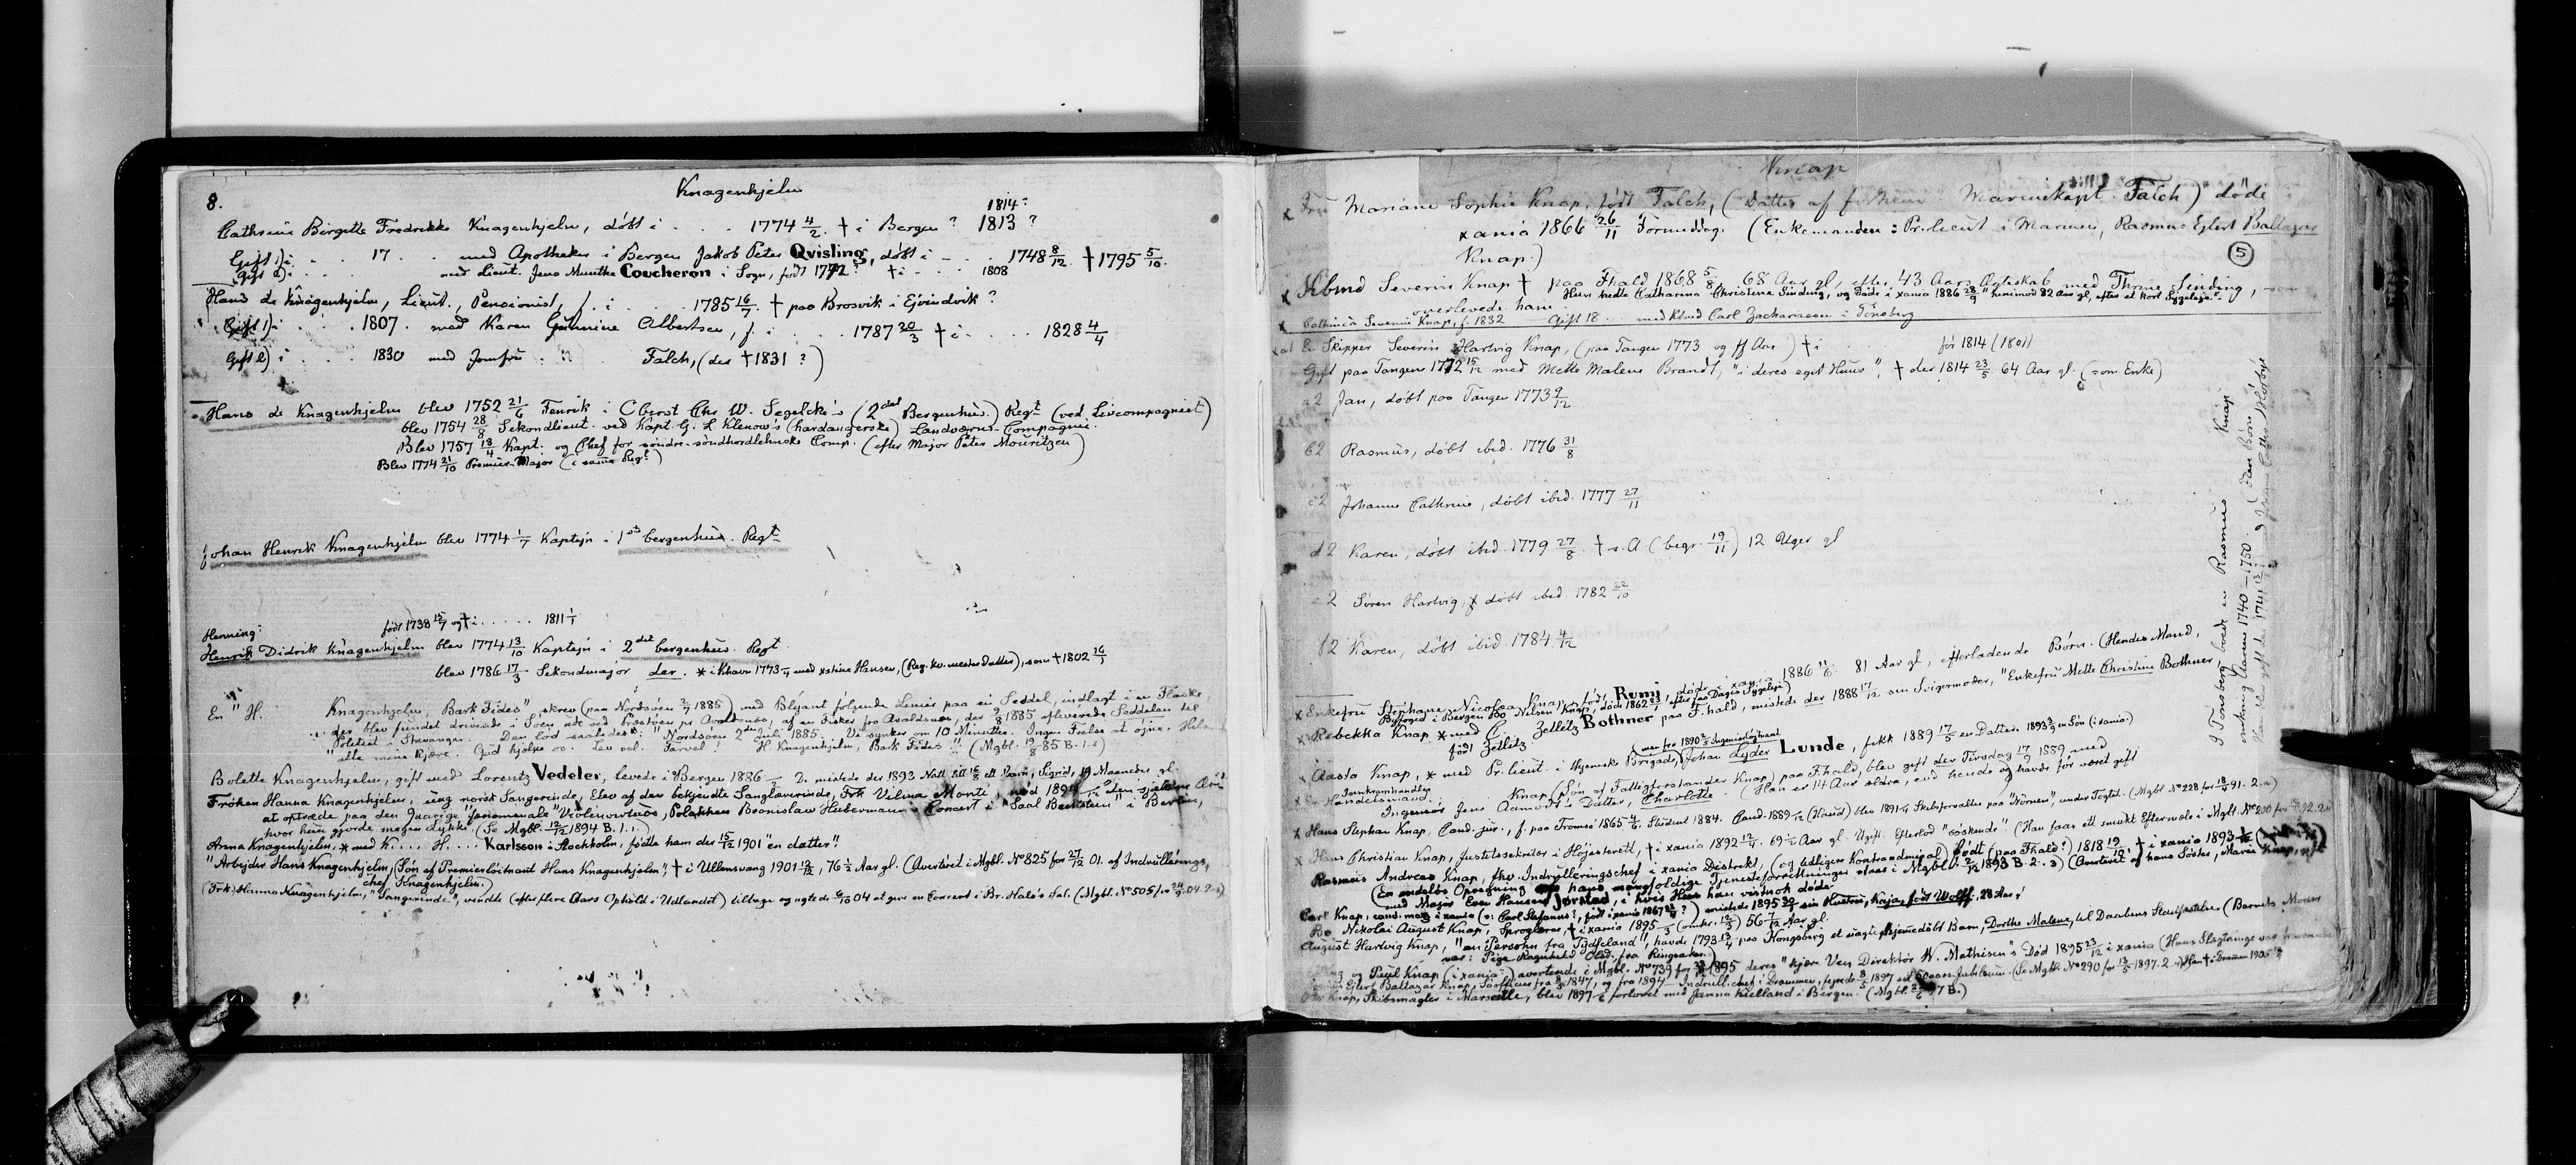 8.
Knagenhjelm
1814?
Cathrine Birgitte Fredrikke Knagenhjelm, døbt i . . . 1774 4/2. † i Bergen ? 1813 ?
Gift 1) i . . 17 . . med Apotheker i Bergen Jakob Peter Qvisling, døbt i - . . 1748 8/12. † 1795 5/10.
Gift 2) i . . . . med Lieut. Jens Munthe Coucheron i Sogn, født 1772? † i - . . . 1808
Hans de Knagenhjelm, Lieut., Pensionist, f. i . . . 1785 16/7. † paa Brosvik i Ejvindvik ?
Gift 1) i . . . 1807. med Karen Albertsen, f. i . . . 1787 20/3 † i . . . 1828 4/4
Gift 2) i . . . 1830 med Jomfru . . Falch, (der † 1831 ?)
Hans de Knagenhjelm blev 1752 21/6 Fenrik i Oberst Chr. W. Segelcke's (2det Bergenhus.) Regt (ved Livcompagniet)
blev 1754 28/8 Sekondlieut. ved Kapt. G. L. Klenow's (hardangerske) Landværns-Compagnie.
Blev 1757 18/4 Kapt. og Chef for søndre-søndhordlehnske Comp. (efter Major Peter Mouritzen)
Blev 1774 21/10 Premier-Major (i samme Regt)
Johan Henrik Knagenhjelm blev 1774 1/7 Kaptejn i 1ste bergenhus. Regt
født 1738 15/7 og † i . . . . . . 1811 1/1
Henning:
Henrik Didrik Knagenhjelm blev 1774 13/10 Kaptejn i 2det bergenhus. Regt
blev 1786 17/3 Sekondmajor der. * i Khavn 1773 med xstine Hansen, (Reg. kv. mester Datter), som † 1802 16/1
En "H. Knagenhjelm, Bark Fides" skrev (paa Nordsøen 2/7 1885) med Blyant følgende Linier paa en Seddel, indlagt i en Flaske,
der blev fundet drivende i Søen ude ved pr Avaldsnes, af en Fisker fra Avaldsnes, der 9/8 1885 afleverede Seddelen til
Politiet i Stavanger. Den lød saaledes: "Nordsøen 2den Juli 1885. Vi synker om 10 Minutter. Ingen Frelse at øjne. Hils
alle mine Kjære. Gud hjelpe os. Lev vel. Farvel ! H. Knagenhjelm, Bark Fides". (Mgbl. 19/8 85 B. 1.6)
Bolette Knagenhjelm, gift med Lorentz Vedeler, levede i Bergen 1886. De mistede der 1892 Natt till 16/5 ett Barn, Sigrid, 19 Maaneder gl.
Frøken Hanna Knagenhjelm, ung norsk Sangerinde, Elev af den bekjendte Sanglærerinde, Frk Vilma Monti, nød 1894 den sjeldne Ære
at optræde paa den 9aarige fænomenale Violinvirtuos, Polakken Bronislaw Hubermann's Concert i "Saal Bechstein" i Berlin,
hvor hun gjorde megen Lykke. (Se Mgbl. 12/12 1894 B. 1.1.)
Anna Knagenhjelm, * med K.... H.... Karlsson i Stockholm, fødte ham der 15/12 1901 "en datter".
"Arbejder Hans Knagenhjelm, (Søn af Premierløitnant Hans Knagenhjelm"), † i Ullensvang 1901, 76 1/2 Aar gl. (Averteret i Mgbl. No 825 for 27/12 01. af Indrullerings-
chef Knagenhjelm.)
(Frk.) Hanna Knagenhjelm, "Sangerinde", vendte (efter flere Aars Ophold i Udlandet) tilbage og agtede 6/10 04 at give en Concert i Br. Hals's Sal. (Mgbl. No 505 for 24/9 04.)
Knap
Fru Mariane Sophie Knap, født Falch, (Datter af Marinekapt. Falch) døde i
xania 1866 26/11 Formiddag. (Enkemanden: Pr.lieut i Marinen, Rasmus Eglert Baltazar
Knap.)
5
Skbmd Severin Knap † paa Fhald 1868 5/8, 68 Aar gl, efter 43 Aars Ægteskab med Thrine Sinding, som
overlevede ham. Hun hedte Catharina Christine Sinding, og døde i xania 1886 28/9 "henimod 82 Aar gl, efter et kort Sygeleje".
Cathinca Severine Knap, f. 1832 Gift 18 . . . med Kbmd Carl Zachariassen i Tønsberg
En Skipper Severin Hartvig Knap, (paa Tangen 1773 og ff Aar) † i før 1814 (1801)
Gift paa Tangen 1772 15/12 med Mette Malene Brandt, "i deres eget Huus", † der 1814 23/5 64 Aar gl. (som Enke)
a2 Jan, døbt paa Tangen 1773 9/12
b2 Rasmus, døbt ibid. 1776 31/8
c2 Johanne Cathrine, døbt ibid. 1777 27/11
d2 Karen, døbt ibid. 1779 27/8. † s. A (begr. 19/11) 12 Uger gl
e2 Søren Hartvig, døbt ibid. 1782 22/10
f2 Karen, døbt ibid. 1784 4/12
I Tønsberg boede en Rasmus Knap
omkring Aarene 1740-1750.
Enkefru Stephane Nicoline Knap, født Rumi, døde i xania 1886 11/6 81 Aar gl, efterladende Børn. (Hendes Mand,
Byfoged i Bergen Bo Nilsen Knap, døde 1862
Rebekka Knap * med C Zetlitz Bothner paa F.hald, mistede der 1888 17/12 sin Svigermoder, "Enkefru Mette Christine Bothner,
født Zetlitz
Aasta Knap, * med Pr. lieut. i Akersuske Brigade, Johan Lyder Lunde, fikk 1889 17/5 en Datter. 1893 en Søn (i xania.)
Handelsmand Knap (Søn af Fattigforstander Knap) paa Fhald, blev gift der Tirsdag 17/9 1889 med
Ingeniør Jens Datter, Charlotte. (Han er 14 Aar ældre, end hende og havde før været gift
Hans Stephan Knap, Cand. jur., f. paa Tromsø 1865 4/6. Student 1884. Cand. 1889 (Haud) blev 1891 Skibsforvalter paa "Nornen", under Togtet. (Mgbl. No 228 for 91. 2.)
Hans Christian Knap, Justitssekretær i Højesterett, † i xania 1892 12/4. 69 1/2 Aar gl. Ugift. Efterlod "søskende". (Han faar ett smukt Eftermæle i Mgbl. No 200 for 92.)
Rasmus Andreas Knap, fhv. Indrulleringschef i xania Distrikt, (og tidligere Kontreadmiral) født (paa Fhald?) 1818 19/10, † i xania 1893
(En endeløs Opregning af hans mangfoldige Tjenesteforretninger staar i Mgbl. 1893 B. 2. 3) (Averteret af hans Søster, Maria Knap, gift
med Major Even Hansen Jørstad, i hvis Hus han vistnok døde.
Carl Knap, cand. mag i xania (: Carl Stefanus?, født i xania 1867?) mistede 1895 sin Hustru, Kaja, født Wolff, 28 Aar,
Bo Nikolai August Knap, Sproglærer, † i xania 1895 (omkr. 12/3) 56 Aar gl.
August Hartvig Knap, "en Persohn fra Tydskland", havde 1793 13/4 paa Kongsberg et uægte hjemmedøbt Barn, Dorthe Malene, til Daabens Stadfæstelse (Barnets Moder
var: Pige Ragnhild Olsd. fra Ringsaker.)
og Paul Knap (i xania) averterede i Mgbl. No 739 for 1895 deres "kjære Ven Direktør W. Mathisen's" Død 1895 23/12 i xania
Eglert Baltazar Knap, Søofficer fra 1847, og fra 1894 Indrull.chef i Drammen, fejrede 1897 sit 50aars Jubilæum. (Se Mgbl. No 290 for 13/5 1897. 2.) Han † i Drammen
Knap, Skibsmægler i Marseille, blev 1897 forlovet med Janna Kielland i Bergen. (Mgbl. 97 B.)